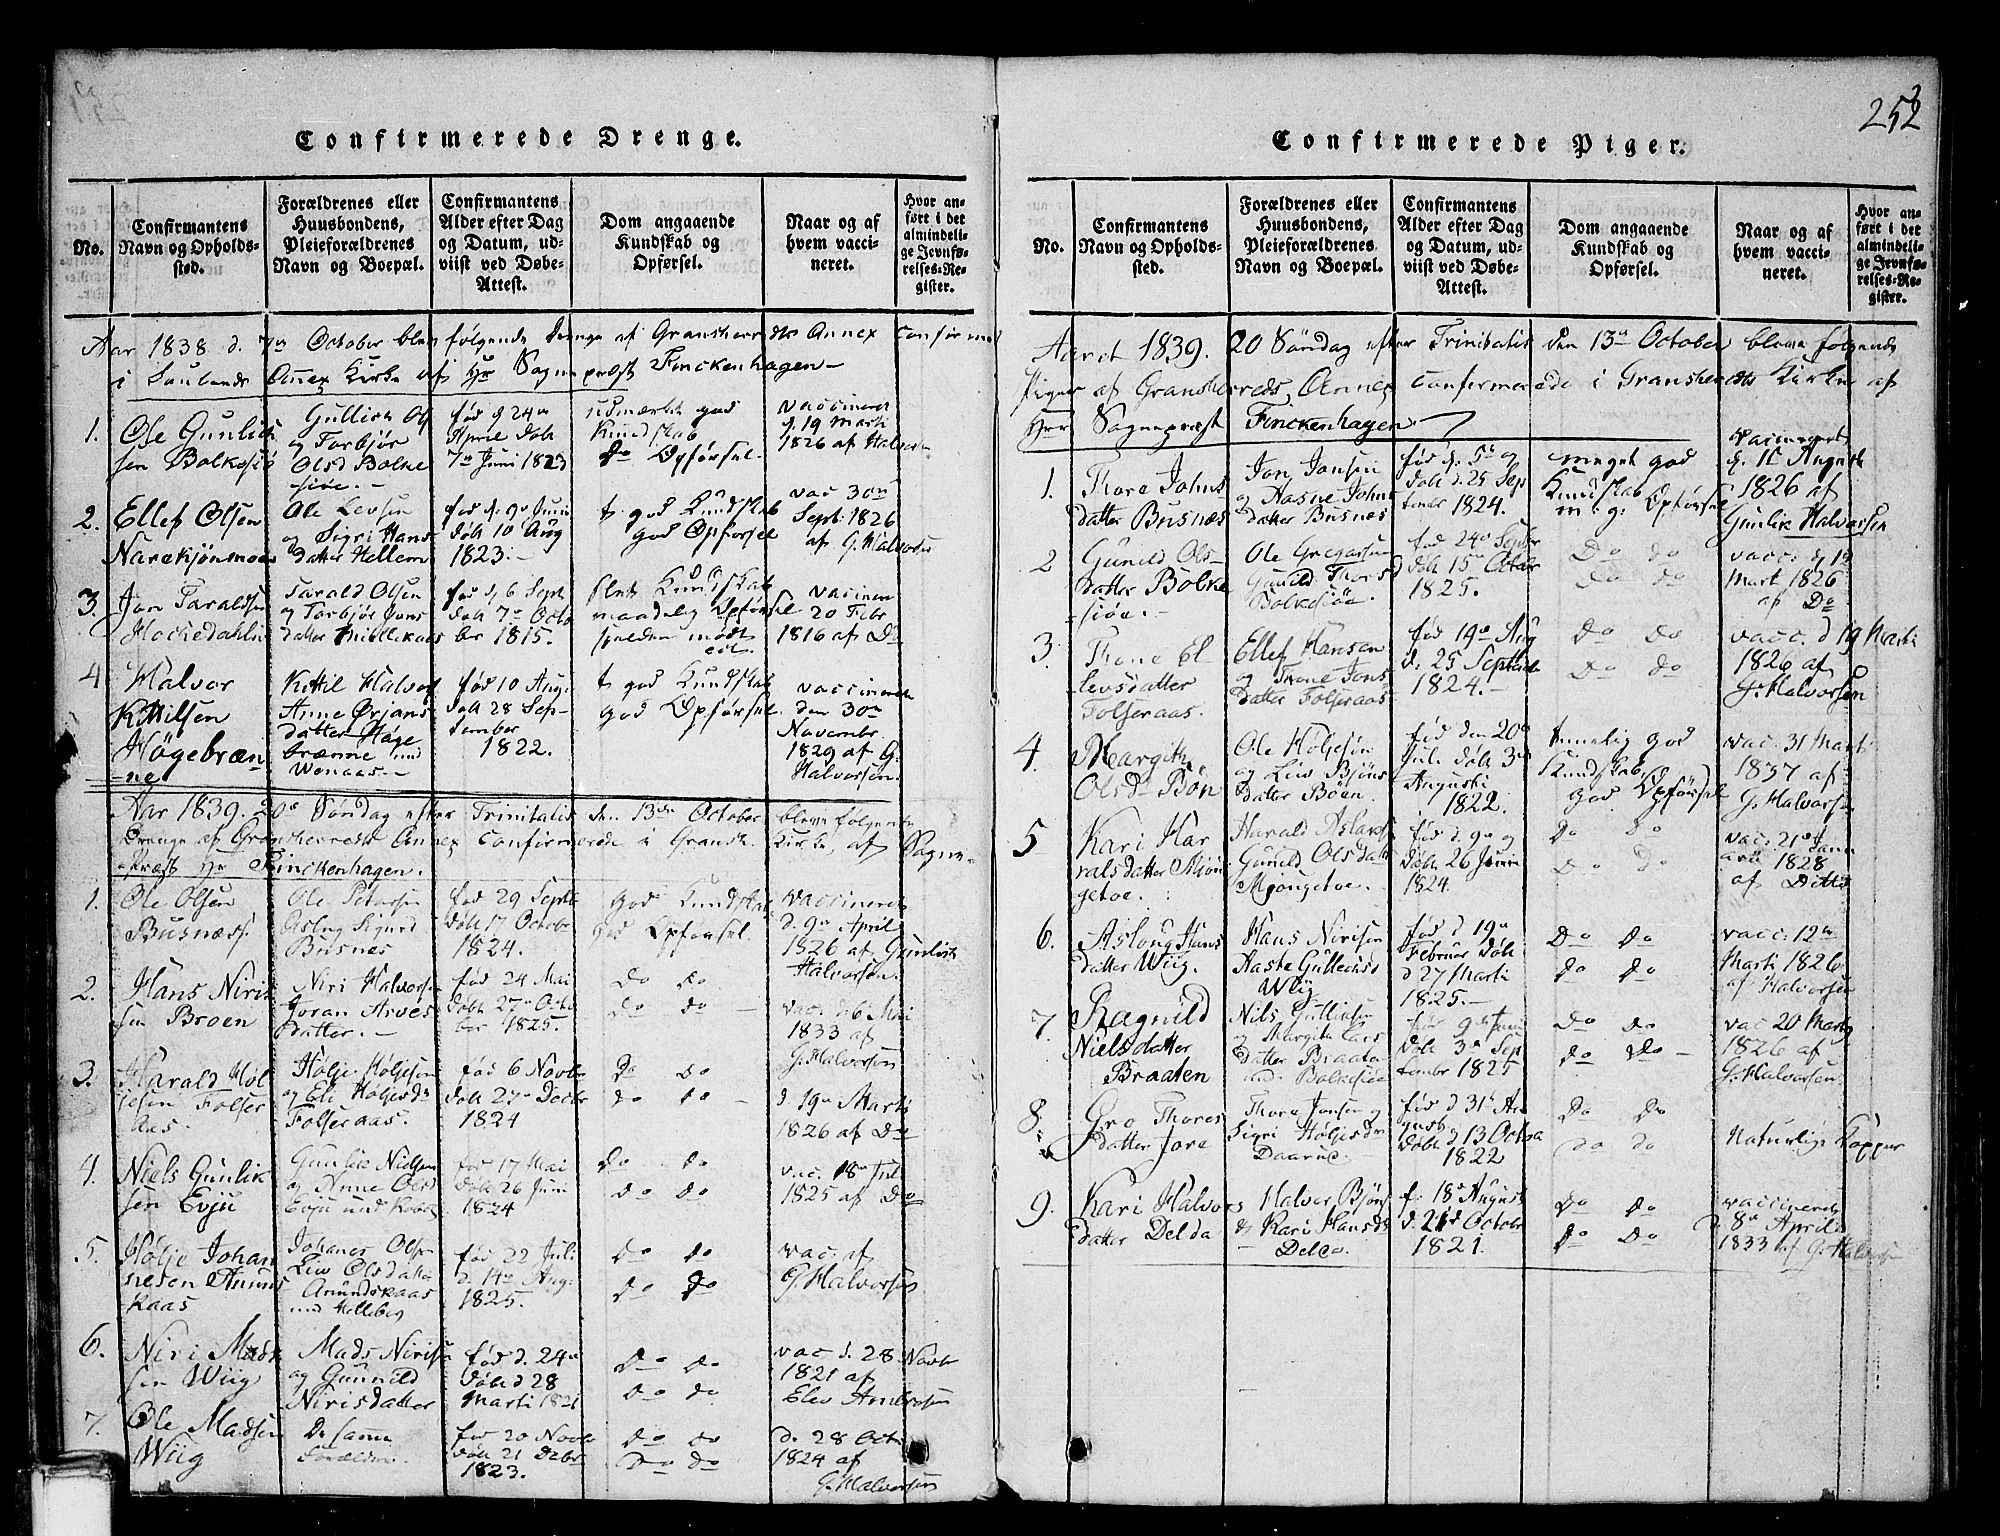 252
Confirmerede Drenge.
No.
Confirmantens
Navn og Opholds-
sted.
Forældrenes eller
Huusbondens,
Pleieforældrenes
Navn og Boepæl.
Confirmantens
Alder efter Dag
og Datum, ud-
viist ved Døbe-
Attest.
Dom angaaende
Kundskab og
Opførsel.
Naar og af
hvem vacci-
neret.
Hvor an-
ført i det
almindeli-
ge Jevnfø-
relses-Re-
gister.
Aar 1838 d. 7de October blev følgende Drenge af Gransherreds Annex
i Saulands Annex Kirke af Hr Sognepræst Finckenhagen
1.
Ole Gunlik
sen Bolkesiø
og Torbjør
Olsd Bolke
siøe.
født d 24de
April døbt
7de Juni 1823
udmærket god
Kundskab
do Opførsel
vaccineret
d. 19 Marti
1826 af Halvorsen
2.
Ellef Olsen
Ole Levsen
og Sigri Hans
datter Hellem
født d. 9de Juni
døbt 10 Aug
1823.
t. god Kundskab
god Opførsel
vac 30te
Sept. 1826
af G. Halvorsen
3.
Jon Taraldsen
Tarald Olsen
og Torbjør Jons
datter
født d 6 Sept
døbt 7de Octo
ber 1815.
slet Kundskab
maadelig Opførsel
vaccineret
20 Febr
1816 af Do
4
Halvor
Kittilsen
Høgebræn-
ne
Kittil Halvors
Anne Ørjans
datter Høge
brænne und
Wenaas.
født 10 Aug:
døbt 28 Sep-
tember
1822.
t. god Kundskab
god Opførsel
vaccineret
den 30te
Novembr
1829 af G.
Halvorsen.
Aar 1839. 20de Søndag efter Trinitatis den 13de October bleve følgende
Drenge af Gransherreds Annex Confirmerede i Gransh. Kirke, af Sogne-
præst Hr Finckenhagen.
1.
Ole Olsen
Busnæs
Ole Petersen
Busnes
født 29 Sept
døbt 17 Octobr
1824.
god Kundskab
god Opførsel.
vaccineret
d. 9de April
1826 af Gunlik
Halvorsen.
2.
Hans Niri
sen Broen
Niri Halvorsen
Joran Arves
datter.
født 24 Mai
døbt 27de Octo
ber 1825.
do do
do do
vac. d 6 Mai
1833 af
G. Halvorsen
3.
Harald Høl
jesen Folser
Aas.
Høljé Høljesen
og Eli Høljesdr
Folseraas.
født 6 Novbr
døbt 27de Decbr
1824
Do do
do do
d 19de Marti
1826 af Do
4.
Niels Gunlik
sen Evju
Gunlik Nielsen
og Anne Olsd
Evju
født 17 Mai
døbt 26 Juni
1824
Do do
do do
vac. 18de Juli
1825 af Do
5.
Hølje Johan
nesen Amunds
kaas
Johanes Olsen
Liw Olsdatter
Amundskaas
und Helleberg
født 22 Juli
d. 14de Aug:
1825.
do do
do do
vac. af
G. Halvorsen
6.
Niri Mads
sen Wiig
Mads Nirisen
og Gunnild
Nirisdatter
født d. 24de
døbt d 28
Marti 1821
Do do
do do
vac d. 28 Novbr
1821 af
Elev Ambrosen
7.
Ole Madsen
Wiig
De samme
Forældre
født 20 Novbr
døbt 21 Debr
1823.
do do
Do do
d. 28 Octr
1824 af
G. Halvorsen
Confirmerede Piger.
No.
Confirmantens
Navn og Opholds-
sted.
Forældrenes eller
Huusbondens,
Pleieforældrenes
Navn og Boepæl.
Confirmantens
Alder efter Dag
og Datum, ud-
viist ved Døbe-
Attest.
Dom angaaende
Kundskab og
Opførsel.
Naar og af
hvem vacci-
neret.
Hvor an-
ført i det
almindeli-
ge Jevnfø-
relses-Re-
gister.
Aaret 1839. 20 Søndag efter Trinitatis den 13de October bleve følgende
Piger af Gransherreds Annex Confirmerede i Gransherreds Kirke af
Herr Sognepræst Finckenhagen
1.
Thore Johns
datter Busnæs
Jon Jonsen
og Aasne Johns
datter Busnæs
født d. 5te og
døbt d. 25 Sep
tember 1824.
meget god
Kundskab
m. g. Opførsel
vaccineret
d. 11 Augusti
1826 af
Gunlik Halvorsen
2
Gunild Ols-
datter Bolke
siøe.
Ole Gregarsen
Gunild Thorsd
Bolkesiøe
født 24de Septbr
døbt 15de Octobr
1825.
Do do
do do
vacc. d 19
Mart 1826
af Do
3.
Thone El
levsdatter
Folseraas.
Ellef Hansen
og Thone Jons
datter Folseraas
født 19de Aug
d. 25 Septbr
1824.
Do do
Do do
vacc. d 19 Marti
1826 af
G. Halvorsen
4.
Margith
Olsdr Bøn
Ole Høljesøn
og Liw Bjøns
datter Bøen.
født den 20de
Jul. døbt 3de
Augusti
1822.
temelig god
Kundskab,
god Opførsel
vac. 31 Marti
1837 af
G. Halvorsen
5
Kari Har
raldsdatter Mjøn
getoe.
Harald Aslaks
Gunild Olsdatter
Mjøngetoe.
født d 9de og
døbt 26 Juni
1824.
Do do
Do do
vac. 21de Janu
arii 1828
af Ditto
6.
Asloug Hans
datter Wiig.
Hans Nirisen
Aaste Gulleiksd
Wiig
født d 19de
Februar døbt
d 27 Marti
1825.
Do do
Do do
vacc: 12te
Marti 1826
af Halvorsen
7.
Ragnild
Nielsdatter
Braaten
Nils Gullicksen
Margith Lars
datter Braata
und. Bolkesiøe
født 9de Juni
døbt 3de Sep
tembr 1825
Do do
do Do
vac 20 Marti
1826 af
G. Halvorsen.
8.
Gro Thores
datter Jore
Thore Jonsen og
Sigri Høljesdr
født d 31te Au
gust
døbt d 13 Octbr
1822
Do do
do do
Naturlige Kopper
9.
Kari Halvors
datter Delda
Halvor Bjøns
Kari Hansdr
f. 18de August
d. 21de Octobr
1821.
Do do
Do do
vaccineret
d 8de April
1833 af G. Halvorsen